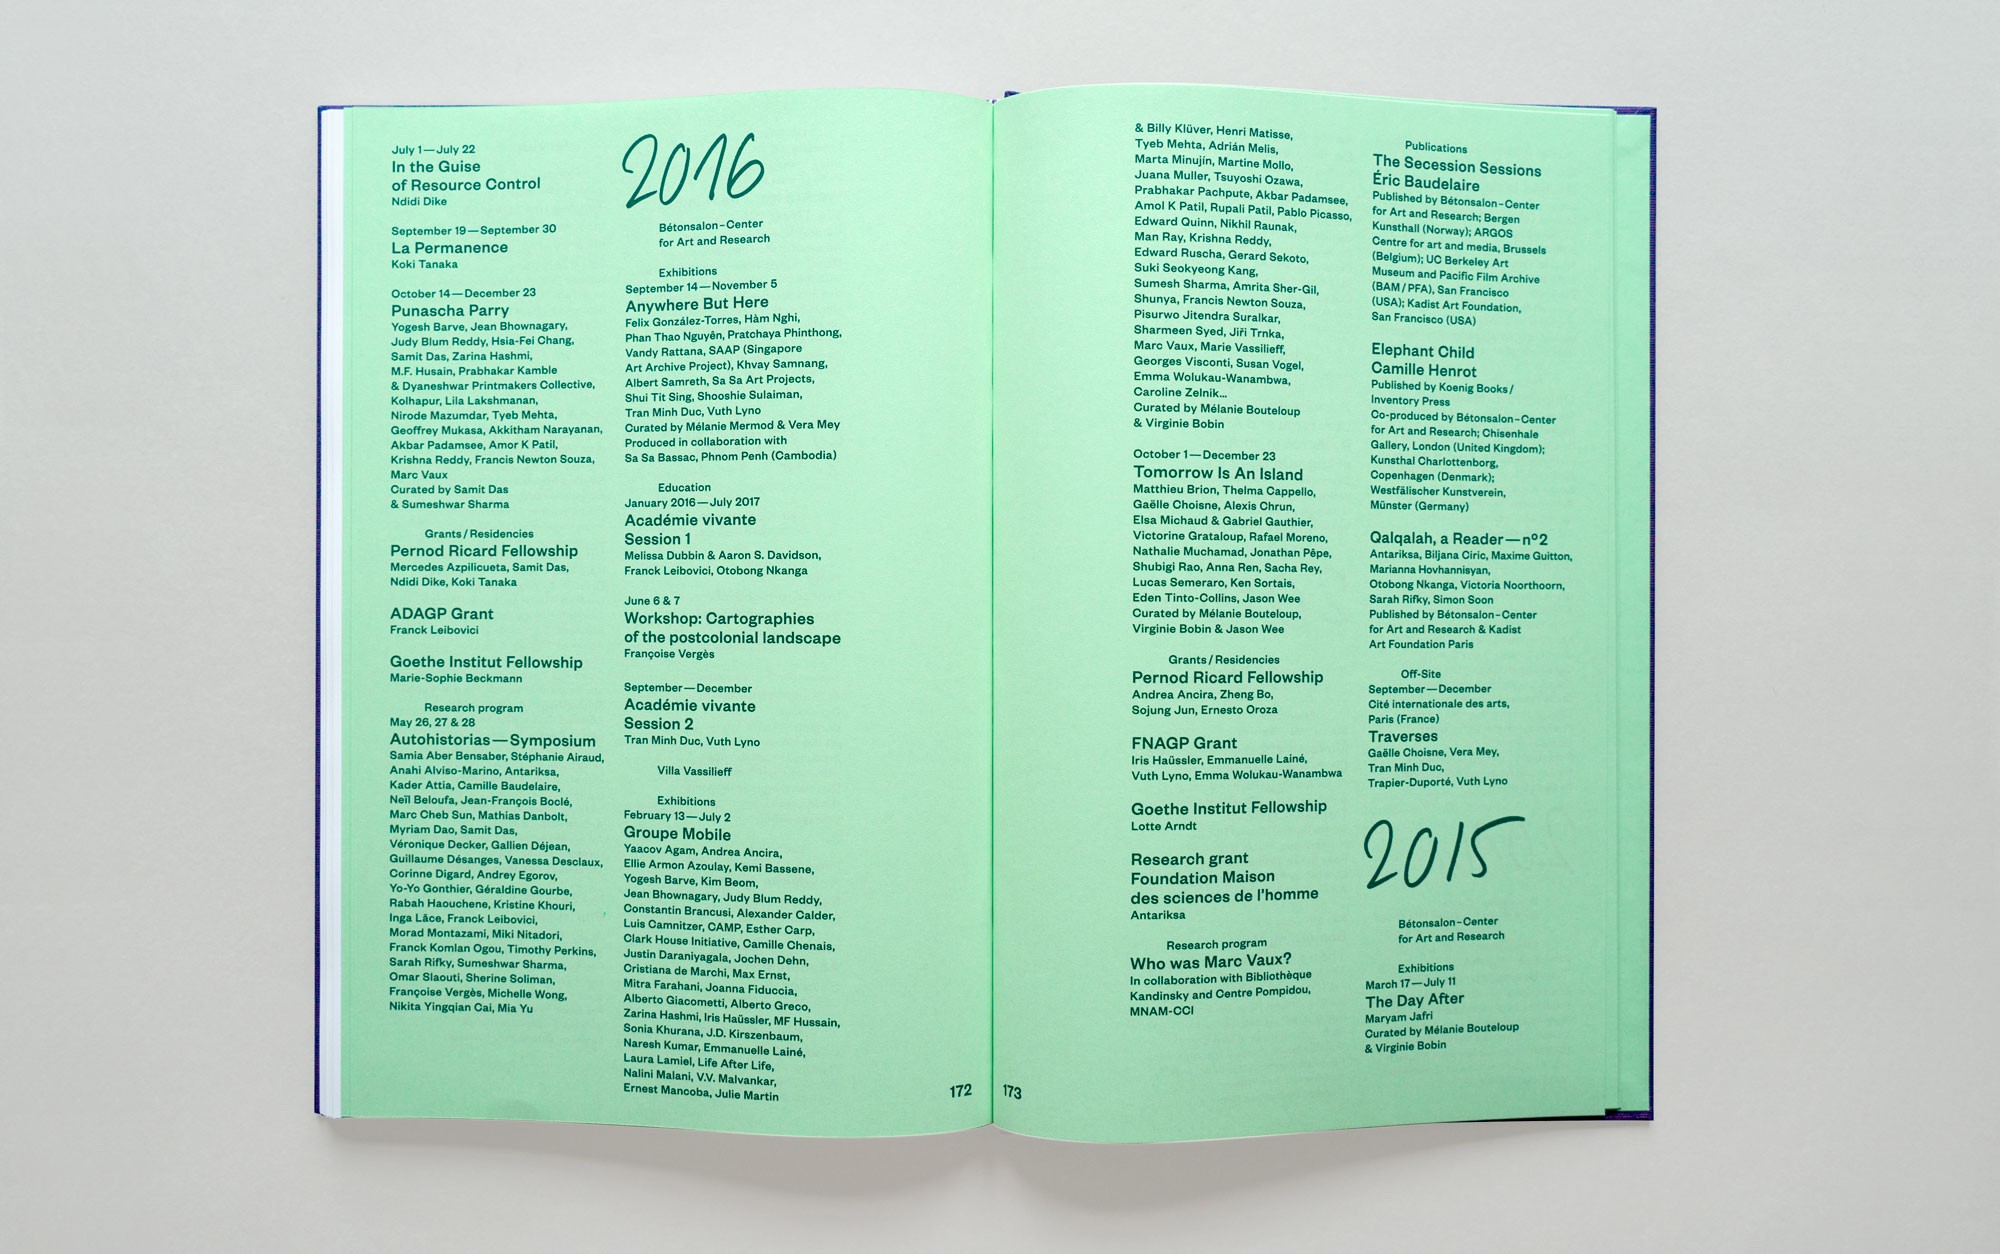 July 1 — July 22
In the Guise
of Resource Control
Ndidi Dike
September 19 — September 30
La Permanence
Koki Tanaka
October 14 — December 23
Punascha Parry
Yogesh Barve, Jean Bhownagary,
Judy Blum Reddy, Hsia-Fei Chang,
Samit Das, Zarina Hashmi,
M.F. Husain, Prabhakar Kamble
& Dyaneshwar Printmakers Collective,
Kolhapur, Lila Lakshmanan,
Nirode Mazumdar, Tyeb Mehta,
Geoffrey Mukasa, Akkitham Narayanan,
Akbar Padamsee, Amor K Patil,
Krishna Reddy, Francis Newton Souza,
Marc Vaux
Curated by Samit Das
& Sumeshwar Sharma
Grants / Residencies
Pernod Ricard Fellowship
Mercedes Azpilicueta, Samit Das,
Ndidi Dike, Koki Tanaka
ADAGP Grant
Franck Leibovici
Goethe Institut Fellowship
Marie-Sophie Beckmann
Research program
May 26, 27 & 28
Autohistorias — Symposium
Samia Aber Bensaber, Stéphanie Airaud,
Anahi Alviso-Marino, Antariksa,
Kader Attia, Camille Baudelaire,
Neïl Beloufa, Jean-François Boclé,
Marc Cheb Sun, Mathias Danbolt,
Myriam Dao, Samit Das,
Véronique Decker, Gallien Déjean,
Guillaume Désanges, Vanessa Desclaux,
Corinne Digard, Andrey Egorov,
Yo-Yo Gonthier, Géraldine Gourbe,
Rabah Haouchene, Kristine Khouri,
Inga Lāce, Franck Leibovici,
Morad Montazami, Miki Nitadori,
Franck Komlan Ogou, Timothy Perkins,
Sarah Rifky, Sumeshwar Sharma,
Omar Slaouti, Sherine Soliman,
Françoise Vergès, Michelle Wong,
Nikita Yingqian Cai, Mia Yu
2016
Bétonsalon – Center
for Art and Research
Exhibitions
September 14 — November 5
Anywhere But Here
Felix González-Torres, Hàm Nghi,
Phan Thao Nguyên, Pratchaya Phinthong,
Vandy Rattana, SAAP (Singapore
Art Archive Project), Khvay Samnang,
Albert Samreth, Sa Sa Art Projects,
Shui Tit Sing, Shooshie Sulaiman,
Tran Minh Duc, Vuth Lyno
Curated by Mélanie Mermod & Vera Mey
Produced in collaboration with
Sa Sa Bassac, Phnom Penh (Cambodia)
Education
January 2016 — July 2017
Académie vivante
Session 1
Melissa Dubbin & Aaron S. Davidson,
Franck Leibovici, Otobong Nkanga
June 6 & 7
Workshop: Cartographies
of the postcolonial landscape
Françoise Vergès
September — December
Académie vivante
Session 2
Tran Minh Duc, Vuth Lyno
Villa Vassilieff
Exhibitions
February 13 — July 2
Groupe Mobile
Yaacov Agam, Andrea Ancira,
Ellie Armon Azoulay, Kemi Bassene,
Yogesh Barve, Kim Beom,
Jean Bhownagary, Judy Blum Reddy,
Constantin Brancusi, Alexander Calder,
Luis Camnitzer, CAMP, Esther Carp,
Clark House Initiative, Camille Chenais,
Justin Daraniyagala, Jochen Dehn,
Cristiana de Marchi, Max Ernst,
Mitra Farahani, Joanna Fiduccia,
Alberto Giacometti, Alberto Greco,
Zarina Hashmi, Iris Haüssler, MF Hussain,
Sonia Khurana, J.D. Kirszenbaum,
Naresh Kumar, Emmanuelle Lainé,
Laura Lamiel, Life After Life,
Nalini Malani, V.V. Malvankar,
Ernest Mancoba, Julie Martin
172
& Billy Klüver, Henri Matisse,
Tyeb Mehta, Adrián Melis,
Marta Minujín, Martine Mollo,
Juana Muller, Tsuyoshi Ozawa,
Prabhakar Pachpute, Akbar Padamsee,
Amol K Patil, Rupali Patil, Pablo Picasso,
Edward Quinn, Nikhil Raunak,
Man Ray, Krishna Reddy,
Edward Ruscha, Gerard Sekoto,
Suki Seokyeong Kang,
Sumesh Sharma, Amrita Sher-Gil,
Shunya, Francis Newton Souza,
Pisurwo Jitendra Suralkar,
Sharmeen Syed, Jiří Trnka,
Marc Vaux, Marie Vassilieff,
Georges Visconti, Susan Vogel,
Emma Wolukau-Wanambwa,
Caroline Zelnik…
Curated by Mélanie Bouteloup
& Virginie Bobin
October 1 — December 23
Tomorrow Is An Island
Matthieu Brion, Thelma Cappello,
Gaëlle Choisne, Alexis Chrun,
Elsa Michaud & Gabriel Gauthier,
Victorine Grataloup, Rafael Moreno,
Nathalie Muchamad, Jonathan Pêpe,
Shubigi Rao, Anna Ren, Sacha Rey,
Lucas Semeraro, Ken Sortais,
Eden Tinto-Collins, Jason Wee
Curated by Mélanie Bouteloup,
Virginie Bobin & Jason Wee
Grants / Residencies
Pernod Ricard Fellowship
Andrea Ancira, Zheng Bo,
Sojung Jun, Ernesto Oroza
FNAGP Grant
Iris Haüssler, Emmanuelle Lainé,
Vuth Lyno, Emma Wolukau-Wanambwa
Goethe Institut Fellowship
Lotte Arndt
Research grant
Foundation Maison
des sciences de l'homme
Antariksa
Research program
Who was Marc Vaux?
In collaboration with Bibliothèque
Kandinsky and Centre Pompidou,
MNAM-CCI
Publications
The Secession Sessions
Éric Baudelaire
Published by Bétonsalon – Center
for Art and Research; Bergen
Kunsthall (Norway); ARGOS
Centre for art and media, Brussels
(Belgium); UC Berkeley Art
Museum and Pacific Film Archive
(BAM / PFA), San Francisco
(USA); Kadist Art Foundation,
San Francisco (USA)
Elephant Child
Camille Henrot
Published by Koenig Books /
Inventory Press
Co-produced by Bétonsalon – Center
for Art and Research; Chisenhale
Gallery, London (United Kingdom);
Kunsthal Charlottenborg,
Copenhagen (Denmark);
Westfälischer Kunstverein,
Münster (Germany)
Qalqalah, a Reader — nº2
Antariksa, Biljana Ciric, Maxime Guitton,
Marianna Hovhannisyan,
Otobong Nkanga, Victoria Noorthoorn,
Sarah Rifky, Simon Soon
Published by Bétonsalon – Center
for Art and Research & Kadist
Art Foundation Paris
Off-Site
September — December
Cité internationale des arts,
Paris (France)
Traverses
Gaëlle Choisne, Vera Mey,
Tran Minh Duc,
Trapier-Duporté, Vuth Lyno
2015
Bétonsalon – Center
for Art and Research
Exhibitions
March 17 — July 11
The Day After
Maryam Jafri
Curated by Mélanie Bouteloup
& Virginie Bobin
173